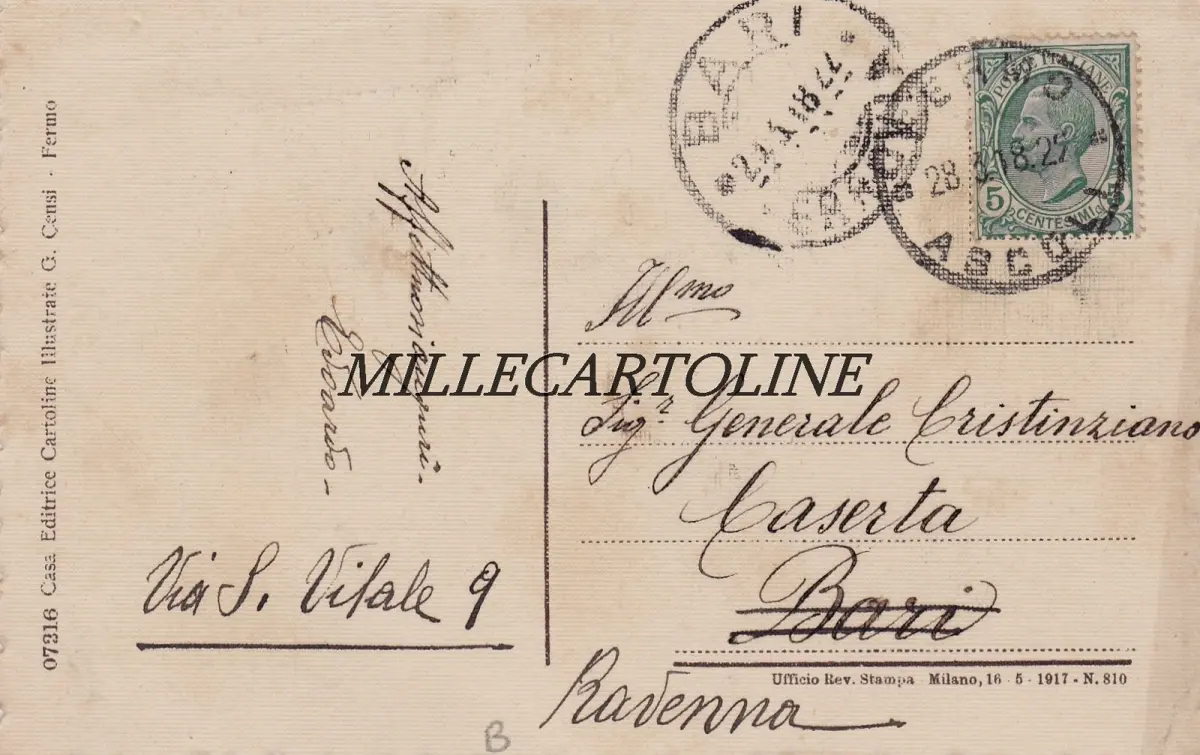 07316 Casa Editrice Cartoline Illustrate G. Censi - Fermo
Affettuosi auguri -
Edoardo -
Via S. Vitale 9
BARI
POSTE ITALIANE
28.3.18.22
5 CENTESIMI 5
Ill mo
Sig.r Generale Cristinziano
Caserta
Bari
Ravenna
Ufficio Rev. Stampa Milano, 16-5-1917 - N. 810
MILLECARTOLINE
B